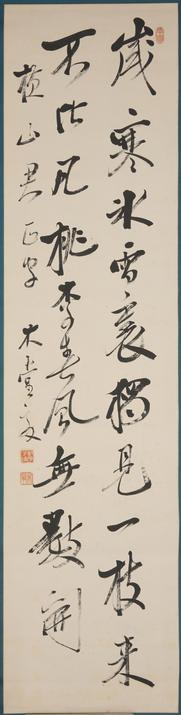 歳寒氷雪裏獨見一枝来
不比凡桃李春風無數開
横山君正字 木堂毅